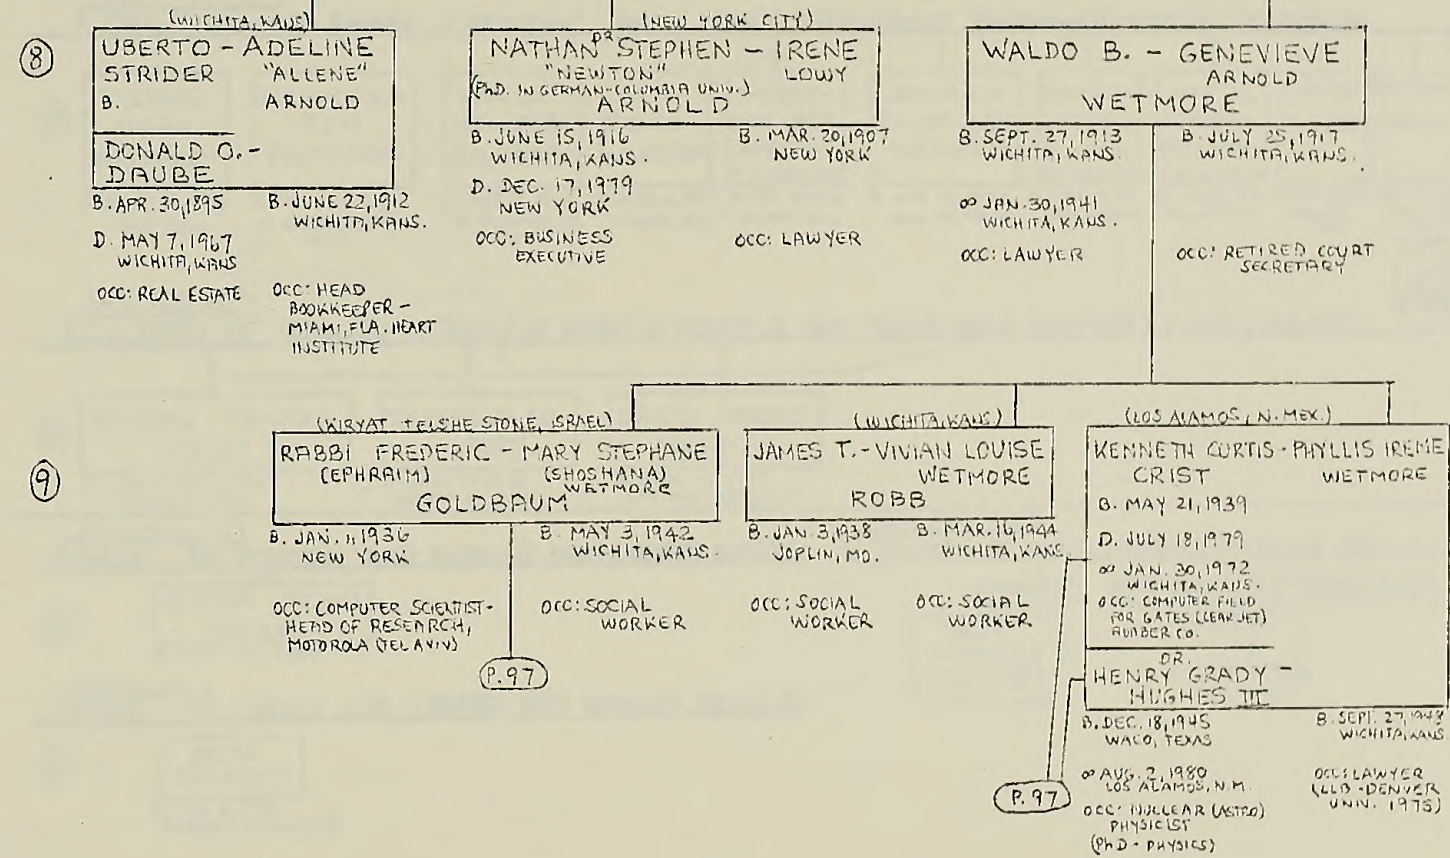 (WICHITA, KANS)
⑧
UBERTO - ADELINE
STRIDER "ALLENE"
B. ARNOLD
DONALD O. -
DAUBE
B. APR. 30, 1895
D. MAY 7, 1967
WICHITA, KANS
OCC: REAL ESTATE
B. JUNE 22, 1912
WICHITA, KANS.
OCC: HEAD
BOOKKEEPER -
MIAMI, FLA. HEART
INSTITUTE
(NEW YORK CITY)
DR
NATHAN STEPHEN - IRENE
"NEWTON" LOWY
(PhD. IN GERMAN-COLUMBIA UNIV.)
ARNOLD
B. JUNE 15, 1916
WICHITA, KANS.
D. DEC. 17, 1979
NEW YORK
OCC: BUSINESS
EXECUTIVE
B. MAR. 20, 1907
NEW YORK
OCC: LAWYER
WALDO B. - GENEVIEVE
ARNOLD
WETMORE
B. SEPT. 27, 1913
WICHITA, KANS.
∞ JAN. 30, 1941
WICHITA, KANS.
OCC: LAWYER
B. JULY 25, 1917
WICHITA, KANS.
OCC: RETIRED COURT
SECRETARY
⑨
(KIRYAT TELSHE STONE, ISRAEL)
RABBI FREDERIC - MARY STEPHANE
(EPHRAIM) (SHOSHANA)
WETMORE
GOLDBAUM
B. JAN. 11, 1936
NEW YORK
OCC: COMPUTER SCIENTIST -
HEAD OF RESEARCH,
MOTOROLA (TEL AVIV)
B. MAY 3, 1942
WICHITA, KANS.
OCC: SOCIAL
WORKER
P. 97
(WICHITA, KANS)
JAMES T. - VIVIAN LOUISE
WETMORE
ROBB
B. JAN. 3, 1938
JOPLIN, MO.
OCC: SOCIAL
WORKER
B. MAR. 16, 1944
WICHITA, KANS.
OCC: SOCIAL
WORKER
(LOS ALAMOS, N. MEX.)
KENNETH CURTIS - PHYLLIS IRENE
CRIST WETMORE
B. MAY 21, 1939
D. JULY 18, 1979
∞ JAN. 30, 1972
WICHITA, KANS.
OCC: COMPUTER FIELD
FOR GATES (LEAR JET)
RUBBER CO.
DR.
HENRY GRADY -
HUGHES III
B. DEC. 18, 1945
WACO, TEXAS
∞ AUG. 2, 1980
LOS ALAMOS, N.M.
OCC: NUCLEAR (ASTRO)
PHYSICIST
(PhD - PHYSICS)
B. SEPT. 27, 1948
WICHITA, KANS
OCC: LAWYER
(LLB - DENVER
UNIV. 1975)
P. 97